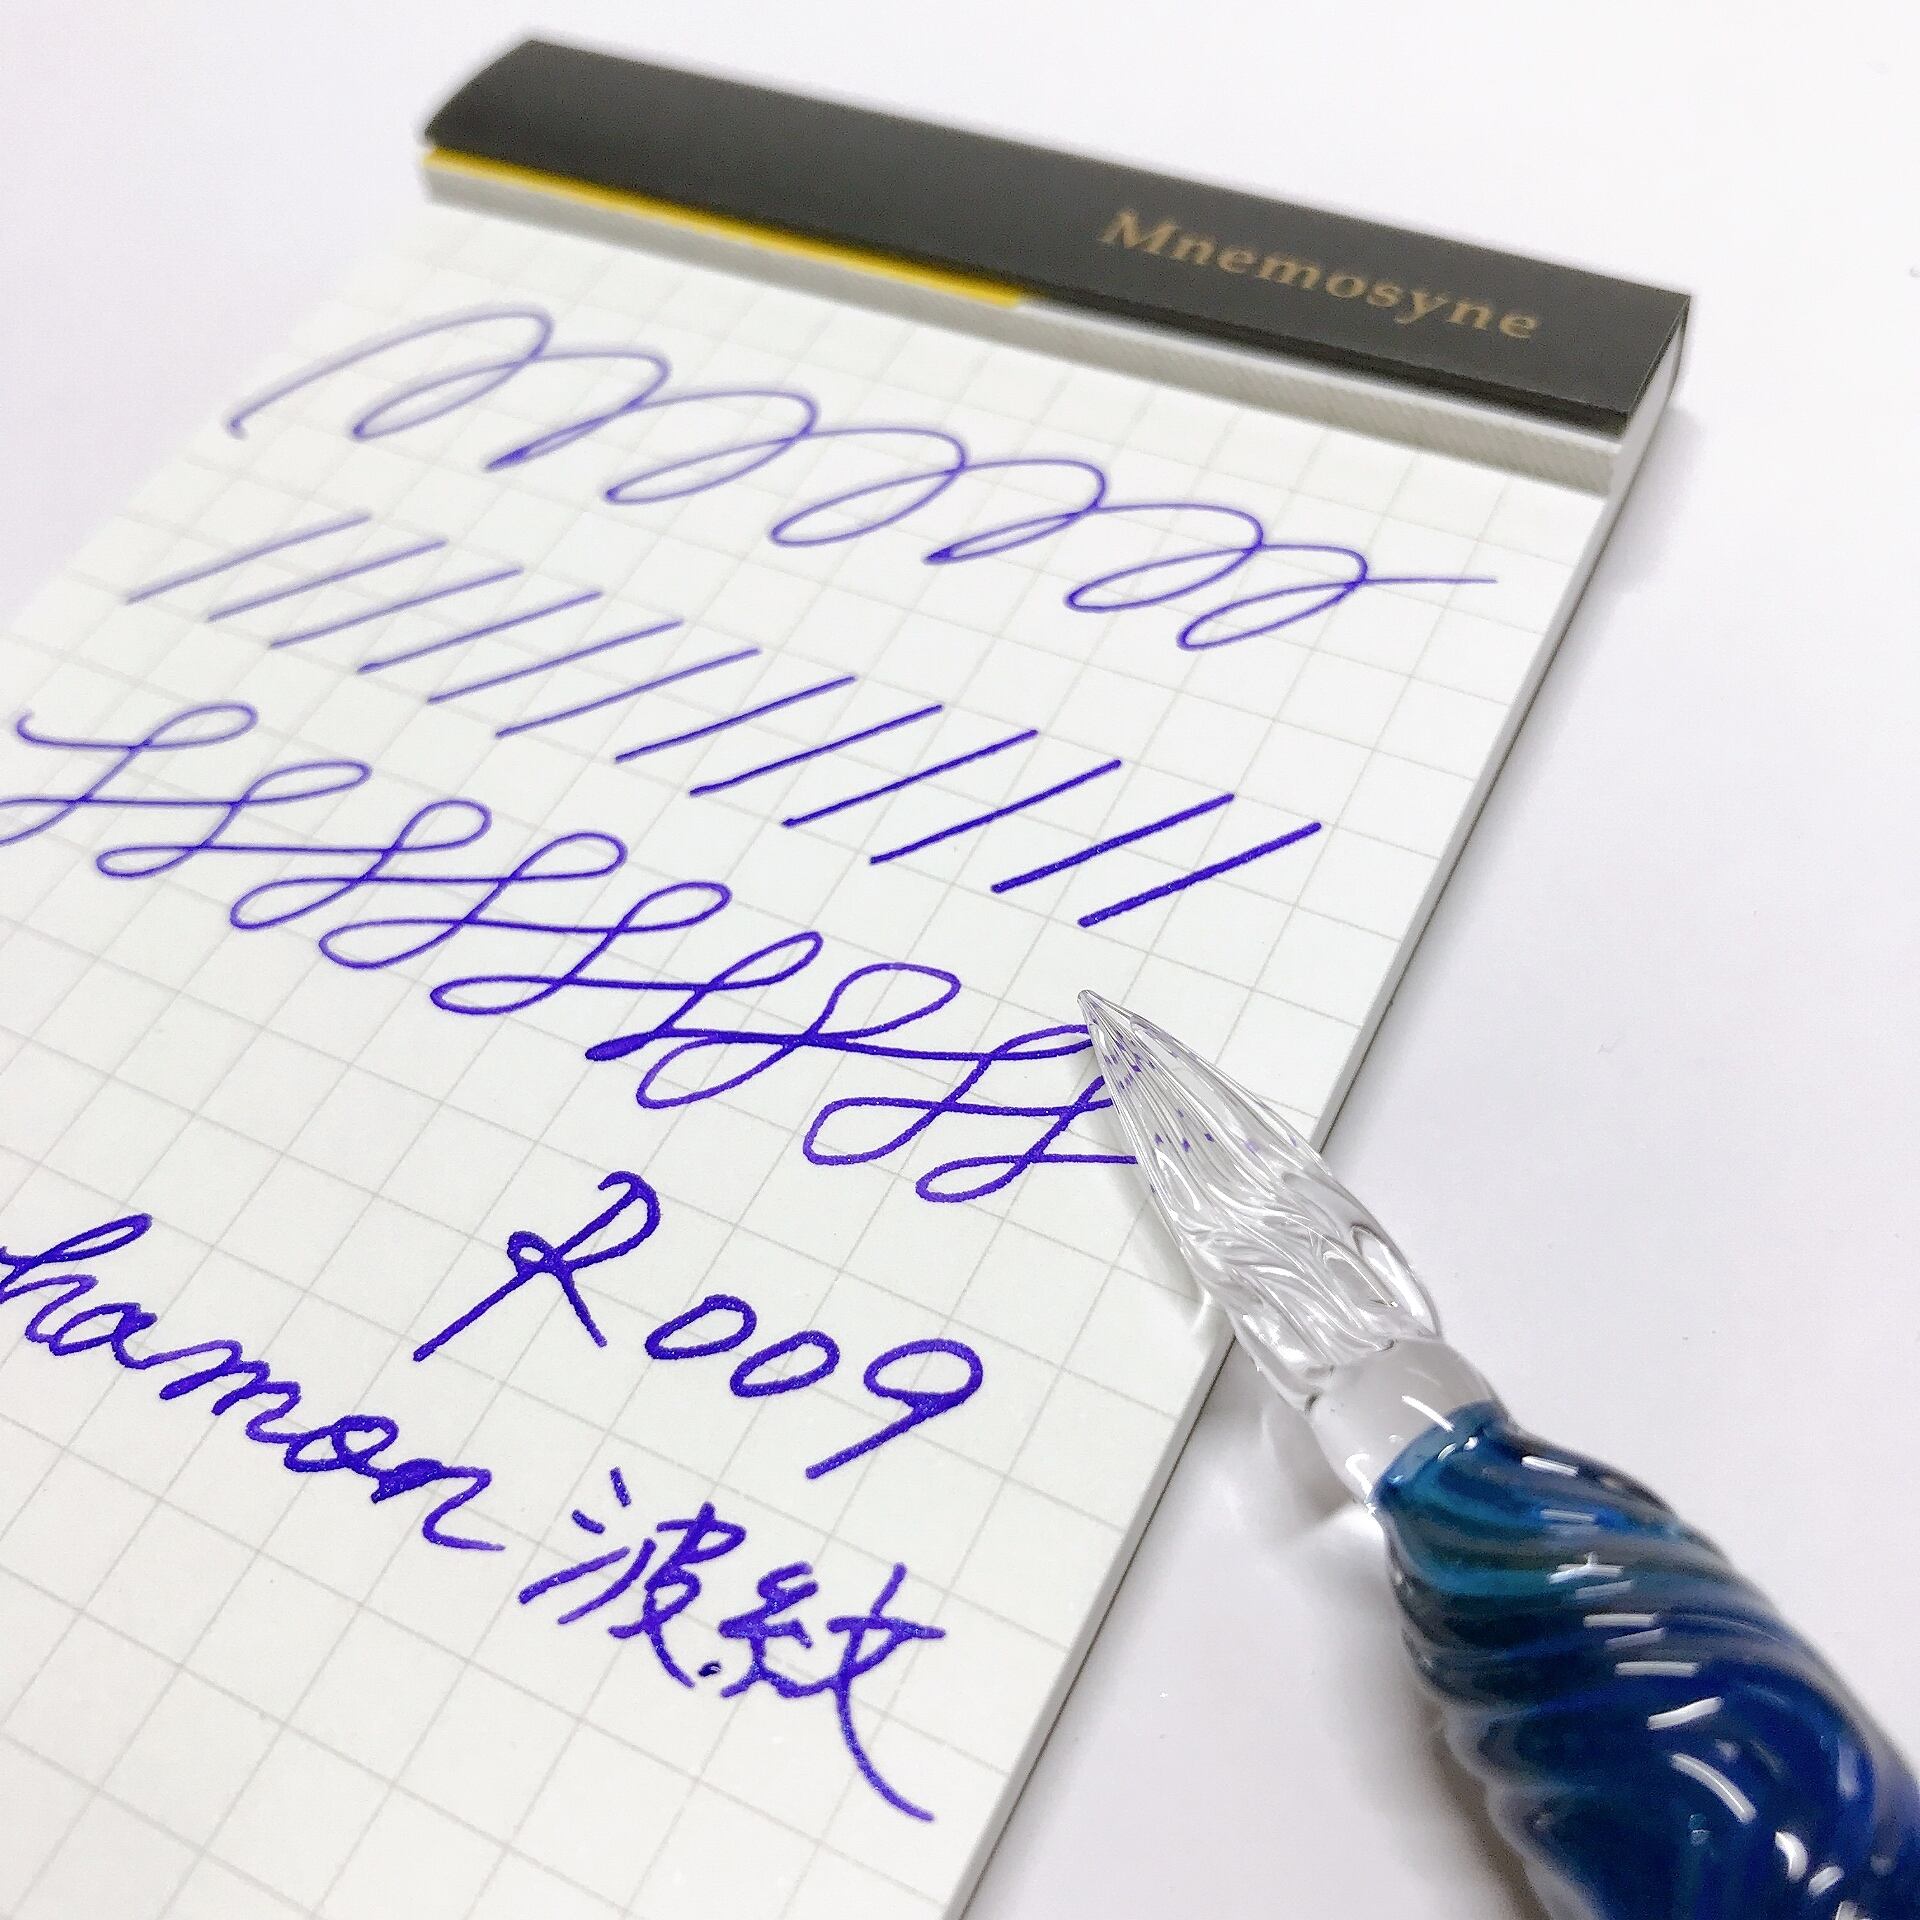 Mnemosyne
R009
hamon 波紋